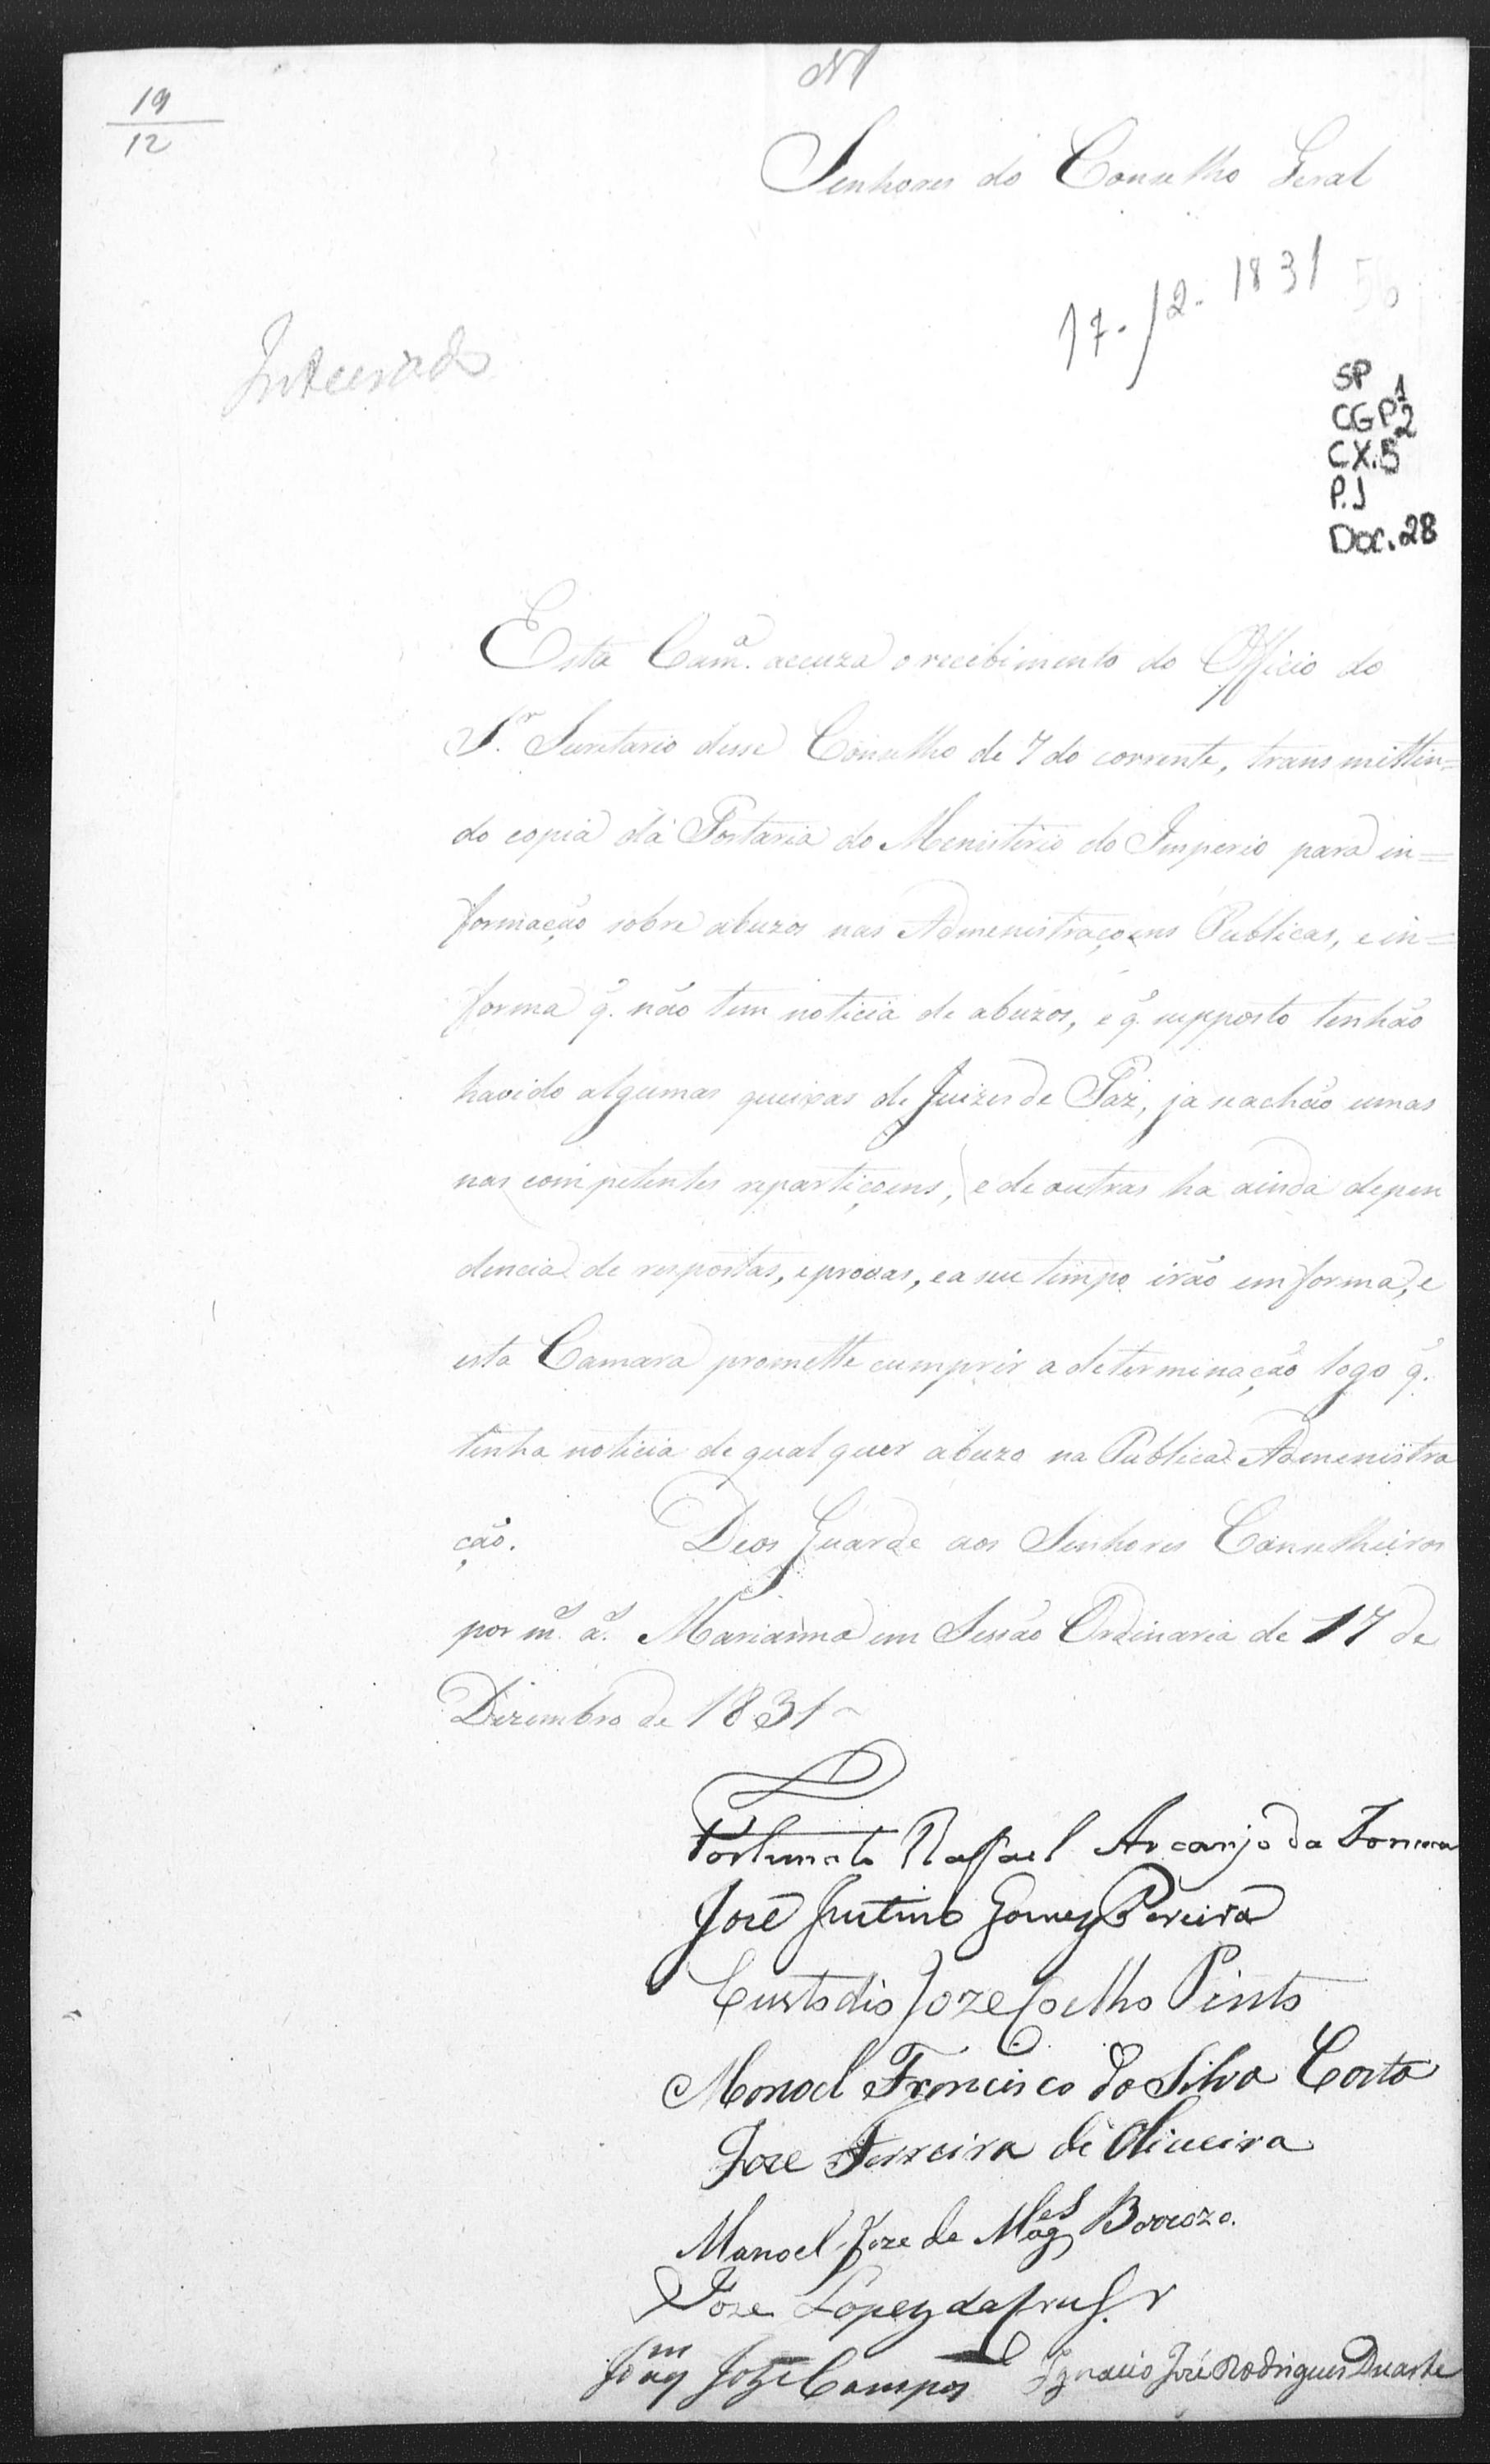 19
12
N1
Senhores do Conselho Geral
17-12-1831
56
Inteirado
SP
CGP 1
2
CX.5
P.J
Doc.28
Esta Camª. accuza o recibimento do Officio do
Sr. Secretario desse Conselho de 7 do corrente, transmittin=
do copia da Portaria do Menisterio do Imperio para in=
formação sobre abuzos nas Admenistraçoens Publicas, e in=
forma q̃. não tem noticia de abuzos, e q̃. supposto tenhão
havido algumas queixas de Juizes de Paz, ja se achão umas
nas competentes repartiçoens, e de outras ha ainda depen
dencia de respostas, e provas, e a seu tempo irão em forma, e
esta Camara promette cumprir a determinação logo q̃.
tenha noticia de qualquer abuzo na Publica Admenistra
ção. Deos Guarde aos Senhores Conselheiros
por m.s a.s Marianna em Sessão Ordinaria de 17 de
Dezembro de 1831
Fortunato Raffael Arcanjo da Fonseca
José Justino Gomes Pereira
Custodio Joze Coelho Pinto
Manoel Francisco da Silva Costa
Joze Ferreira de Oliveira
Manoel Joze de Mag.es Barrozo.
Joze Lopes da Cruz
Joaqm Joze Campos Ignacio José Rodrigues Duarte